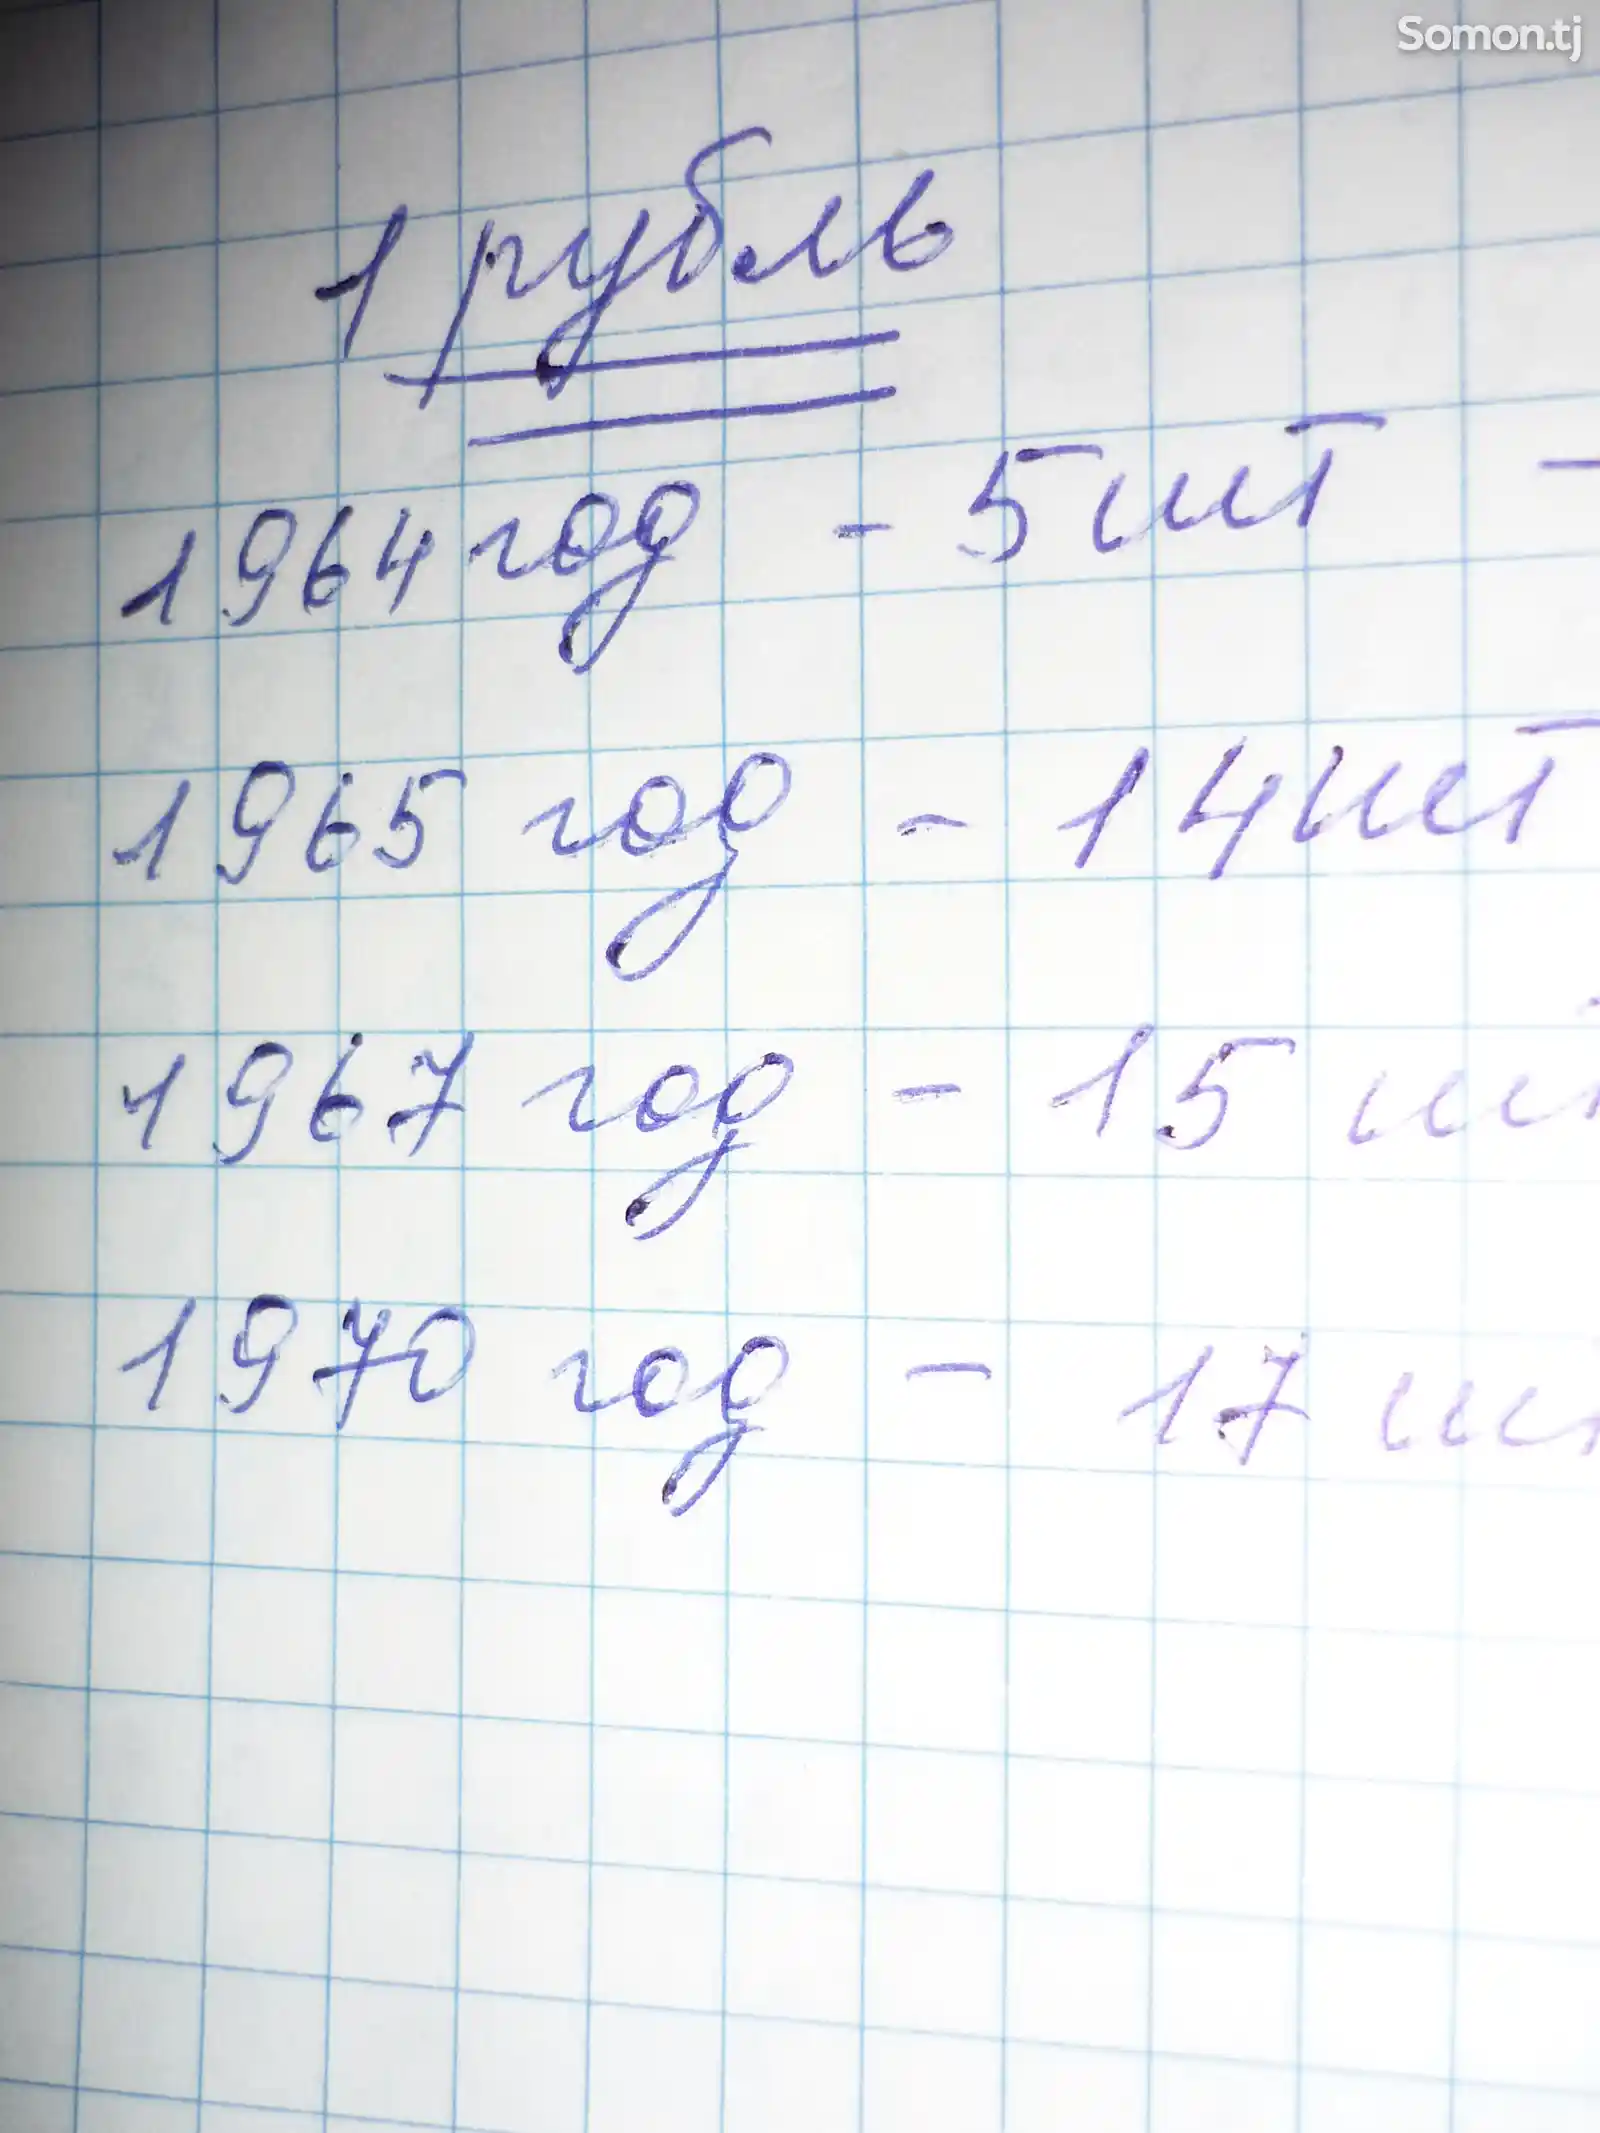 Somon.tj
1 рубль
1964 год - 5 шт -
1965 год - 14 шт
1967 год - 15 шт
1970 год - 17 шт